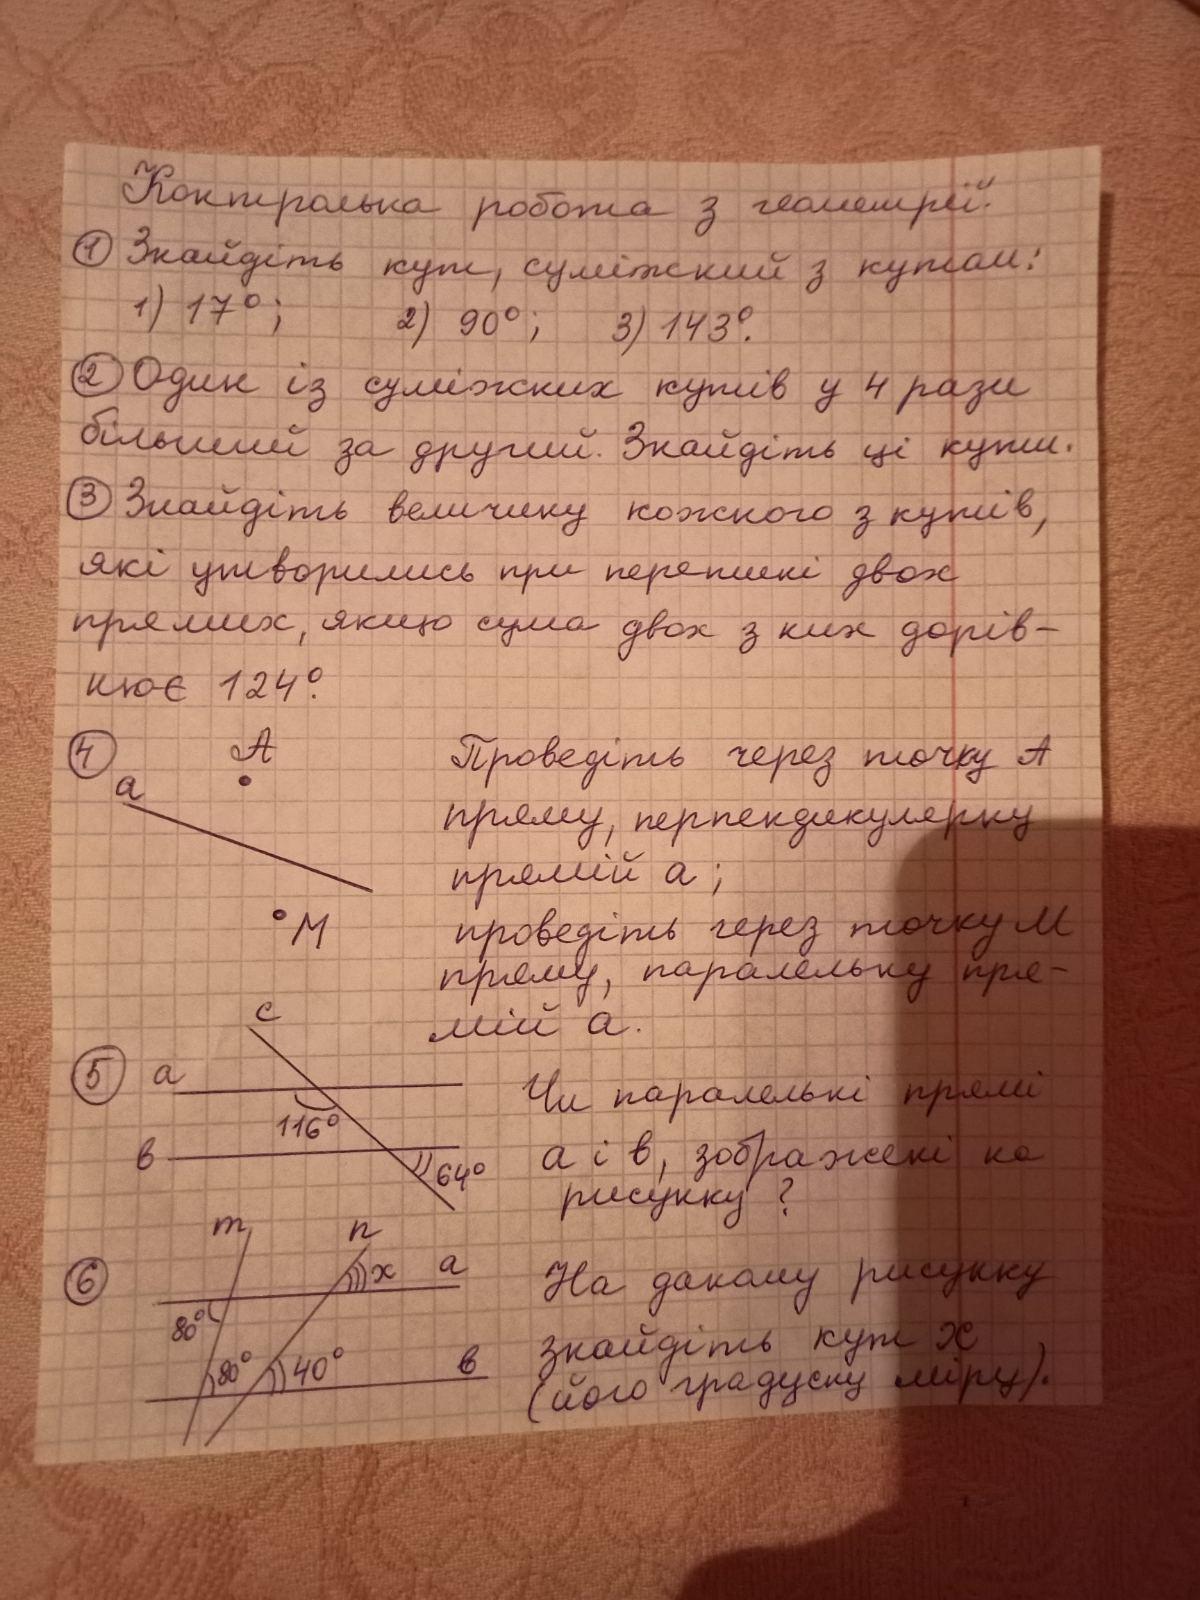 Контрольна робота з геометрії.
① Знайдіть кут, суміжний з кутом:
1) 17°; 2) 90°; 3) 143°.
② Один із суміжних кутів у 4 рази
більший за другий. Знайдіть ці кути.
③ Знайдіть величину кожного з кутів,
які утворились при перетині двох
прямих, якщо сума двох з них дорів-
нює 124°.
④ A Проведіть через точку А
a
пряму, перпендикулярну
прямій а;
M проведіть через точку М
пряму, паралельну пря-
мій а.
c
⑤ a Чи паралельні прямі
116°
в а і в, зображені на
64° рисунку?
m n
⑥ x a На даному рисунку
80° знайдіть кут х
80° 40° в (його градусну міру).